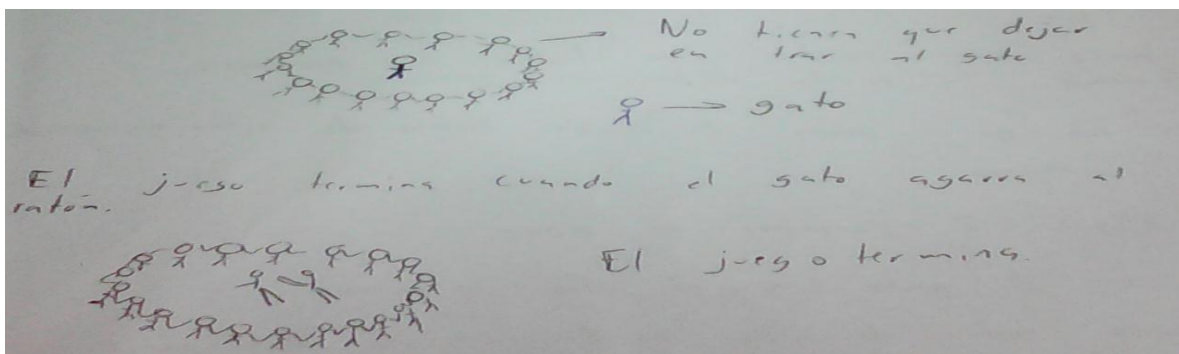 No tienen que dejar
en trar al gato
gato
El juego termina cuando el gato agarra al
ratón.
El juego termina.